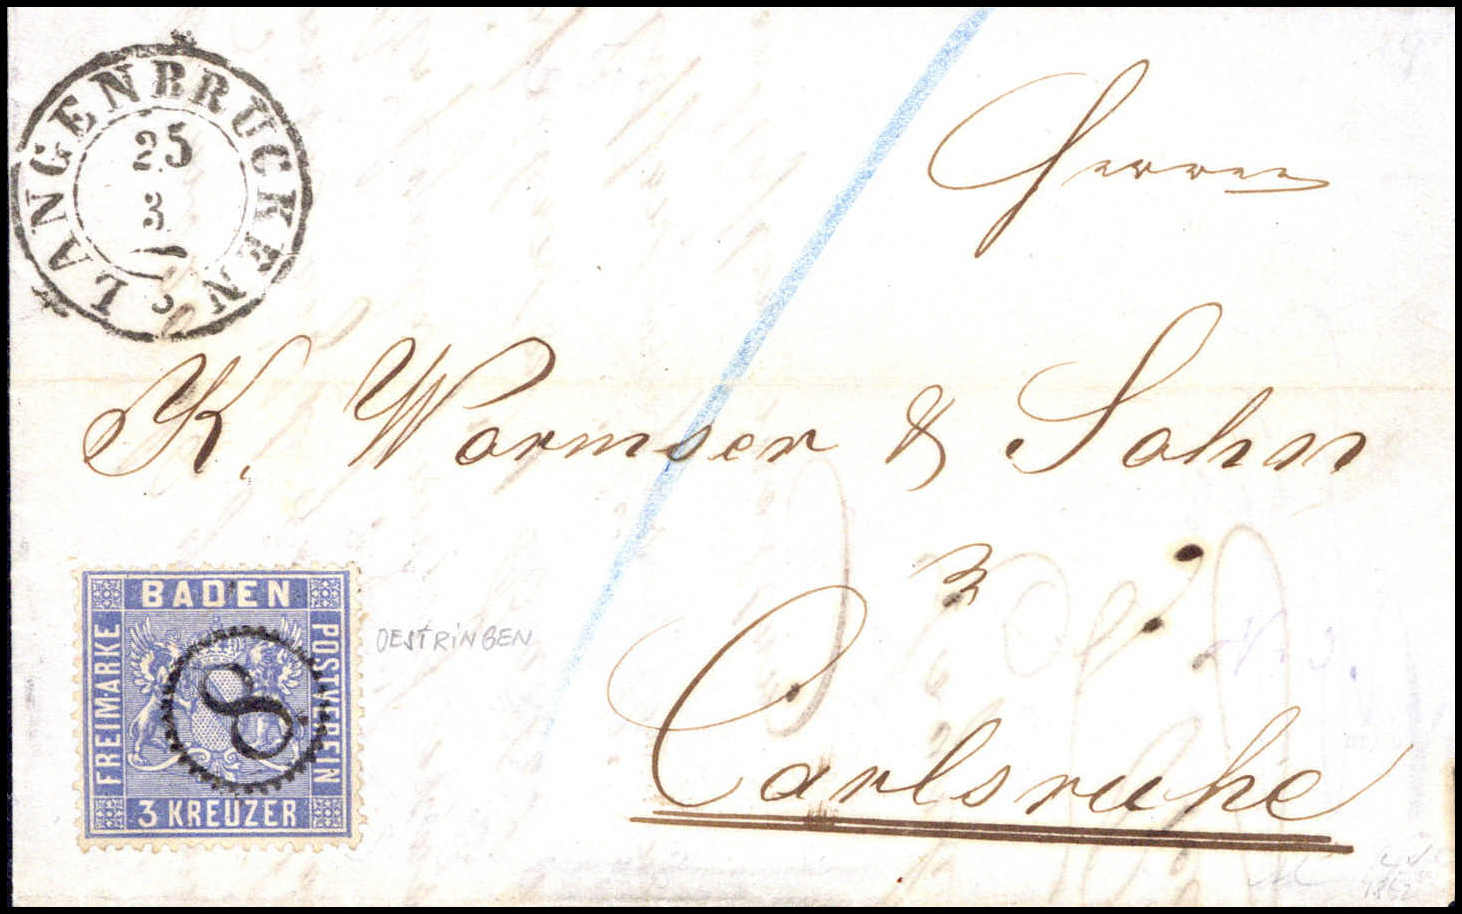 LANGENBRÜCKEN
25
3
Herren
K. Wormser & Sohn
Carlsruhe
BADEN
FREIMARKE
POSTVEREIN
8
3 KREUZER
OESTRINGEN
1862